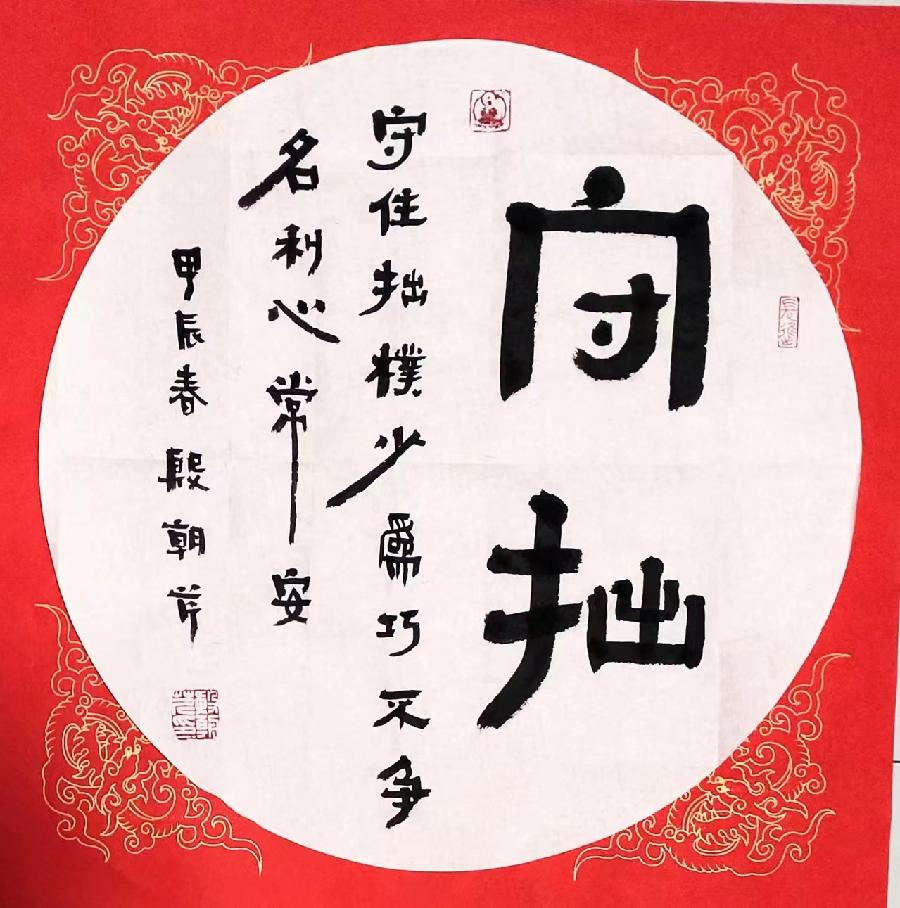 守拙
守住拙樸少爲巧不争
名利心常安
甲辰春殷朝芹